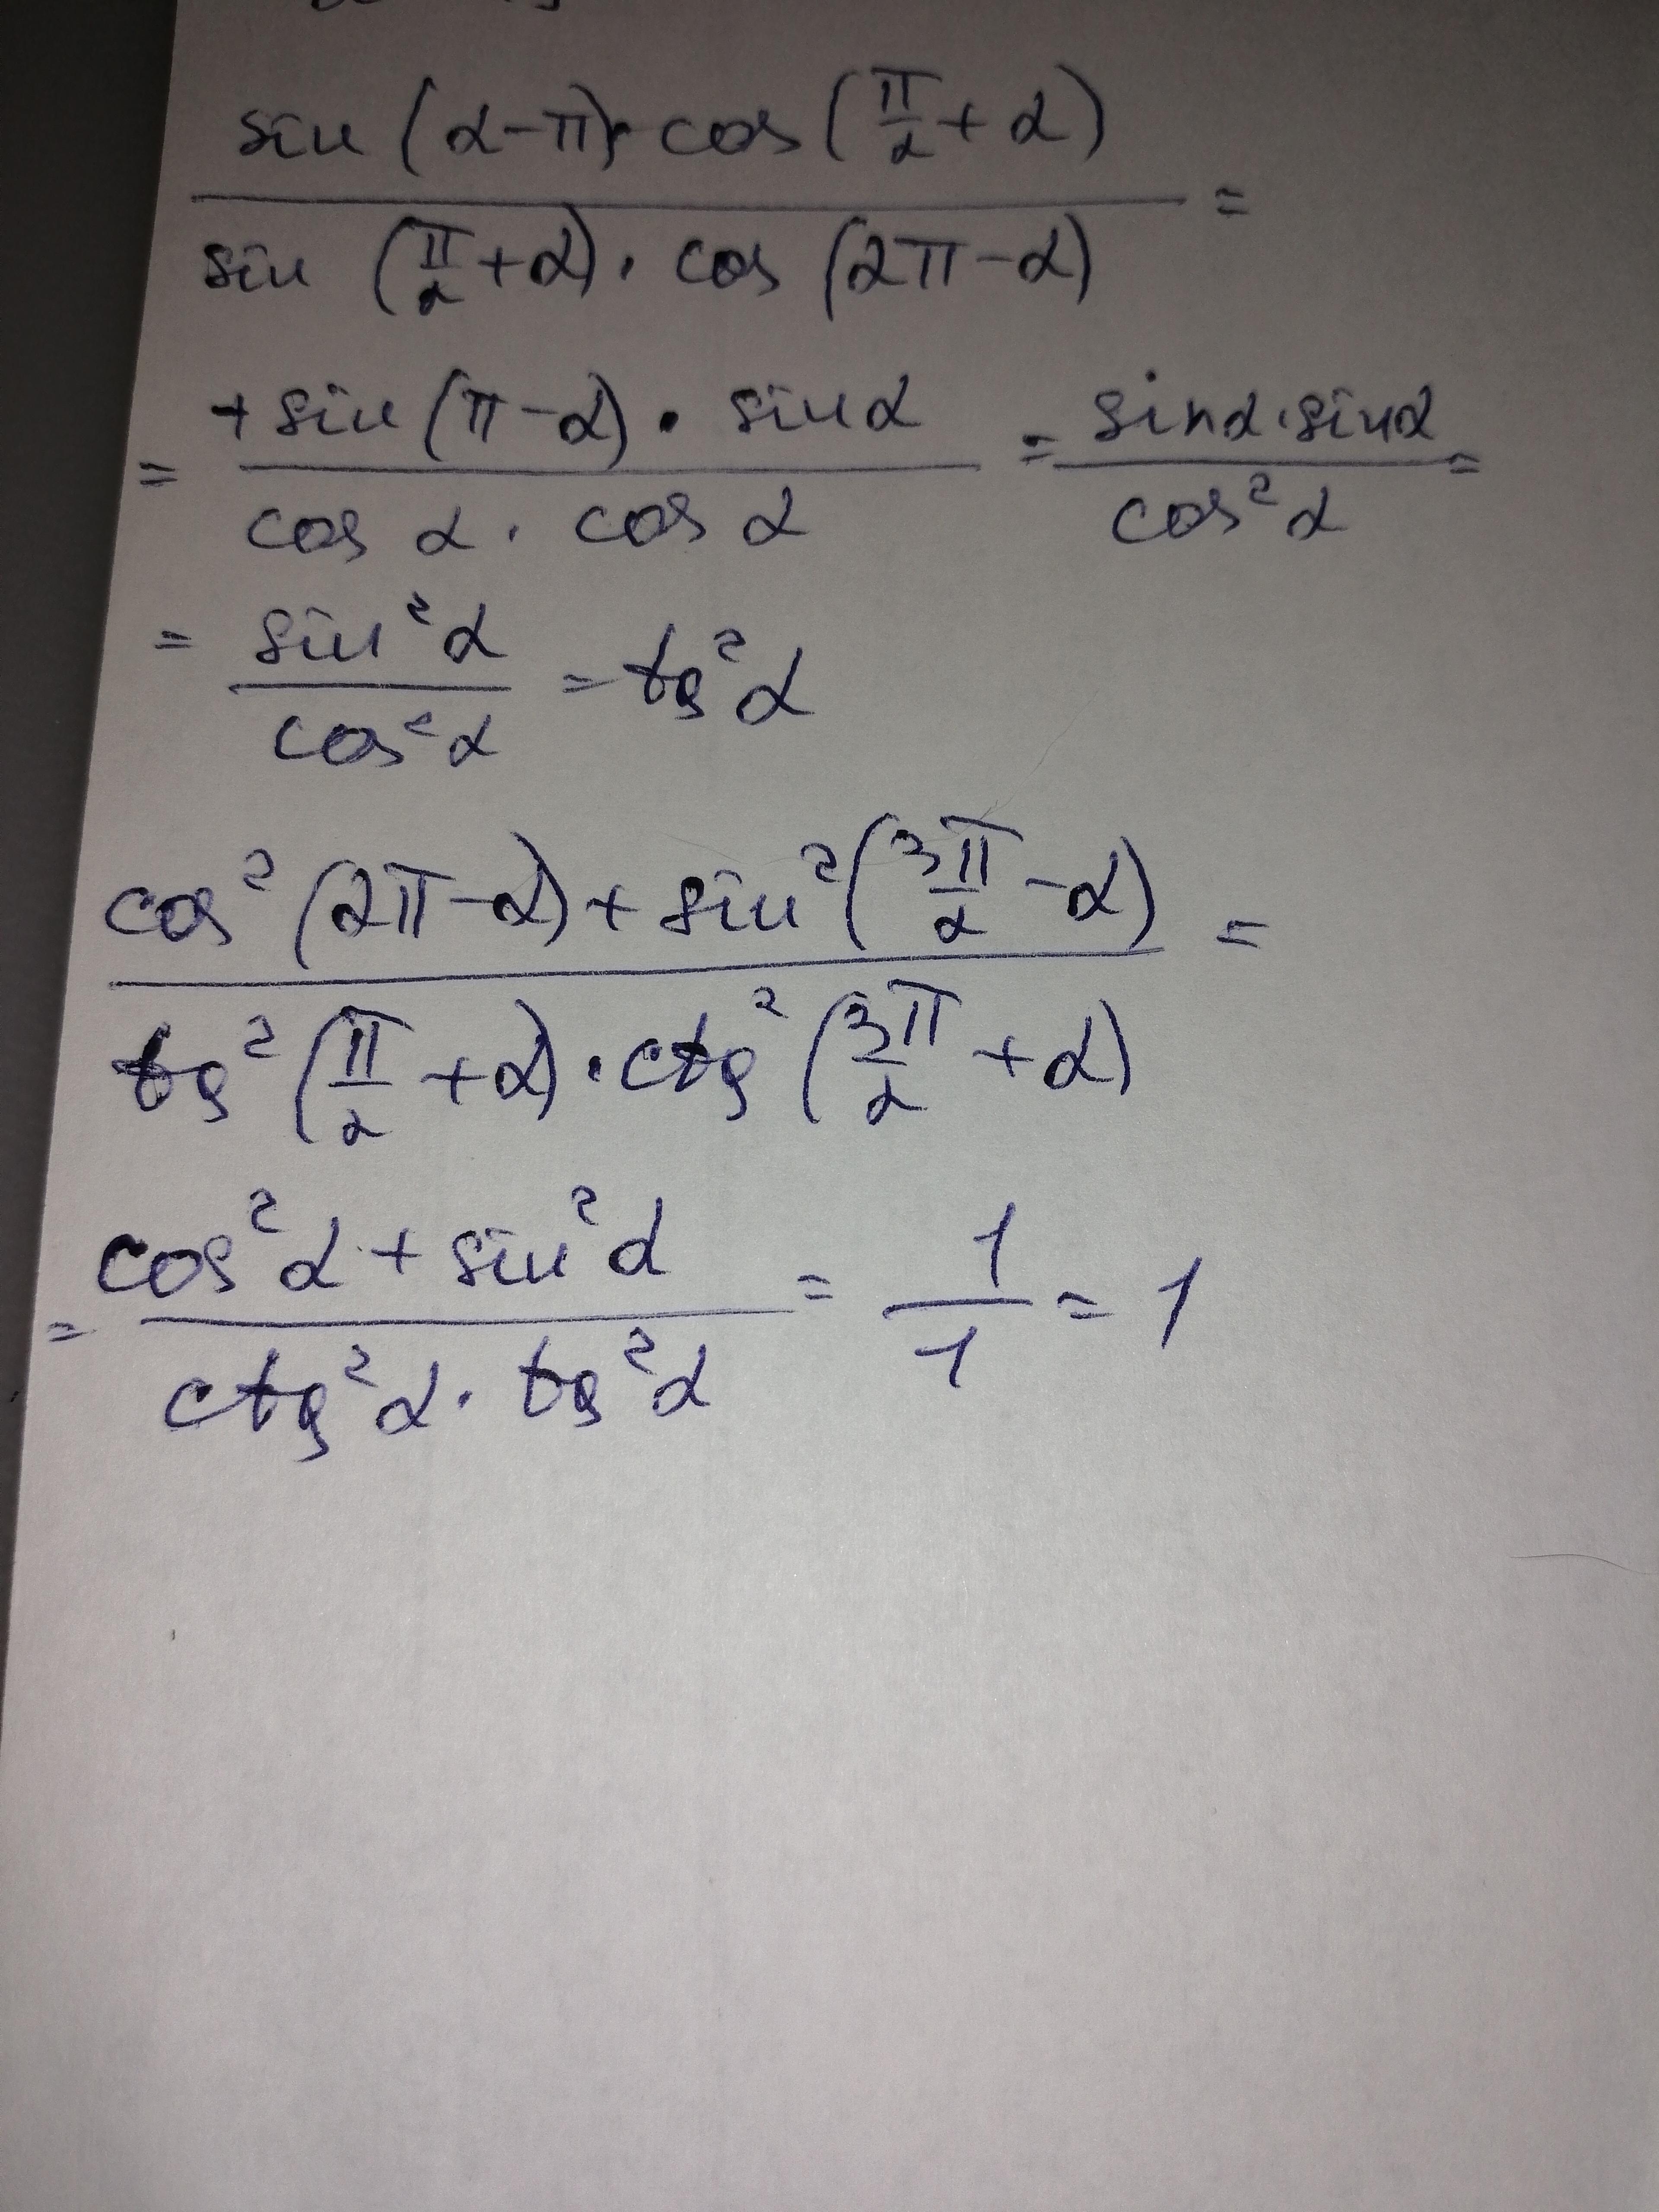 sin (α-π)·cos (π/2 + α)
/ =
sin (π/2 + α) · cos (2π-α)
= +sin (π-α) · sin α / cos α · cos α = sin α · sin α / cos² α =
= sin² α / cos² α = tg² α
cos² (2π-α) + sin² (3π/2 - α)
/ =
tg² (π/2 + α) · ctg² (3π/2 + α)
= cos² α + sin² α / ctg² α · tg² α = 1/1 = 1